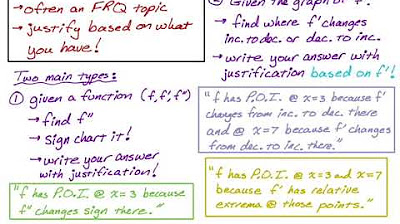 → often an FRQ topic
→ justify based on what
you have!
Two main types:
① given a function (f, f', f")
→ find f"
→ Sign chart it!
→ write your answer
with justification!
"f has P.O.I. @ x=3 because
f" changes sign there."
② Given the graph of f'
→ find where f' changes
inc. to dec. or dec. to inc.
→ write your answer with
justification based on f'!
"f has P.O.I. @ x=3 because f'
changes from inc. to dec. there
and @ x=7 because f' changes
from dec. to inc. there."
"f has P.O.I. @ x=3 and x=7
because f' has relative
extrema @ those points."